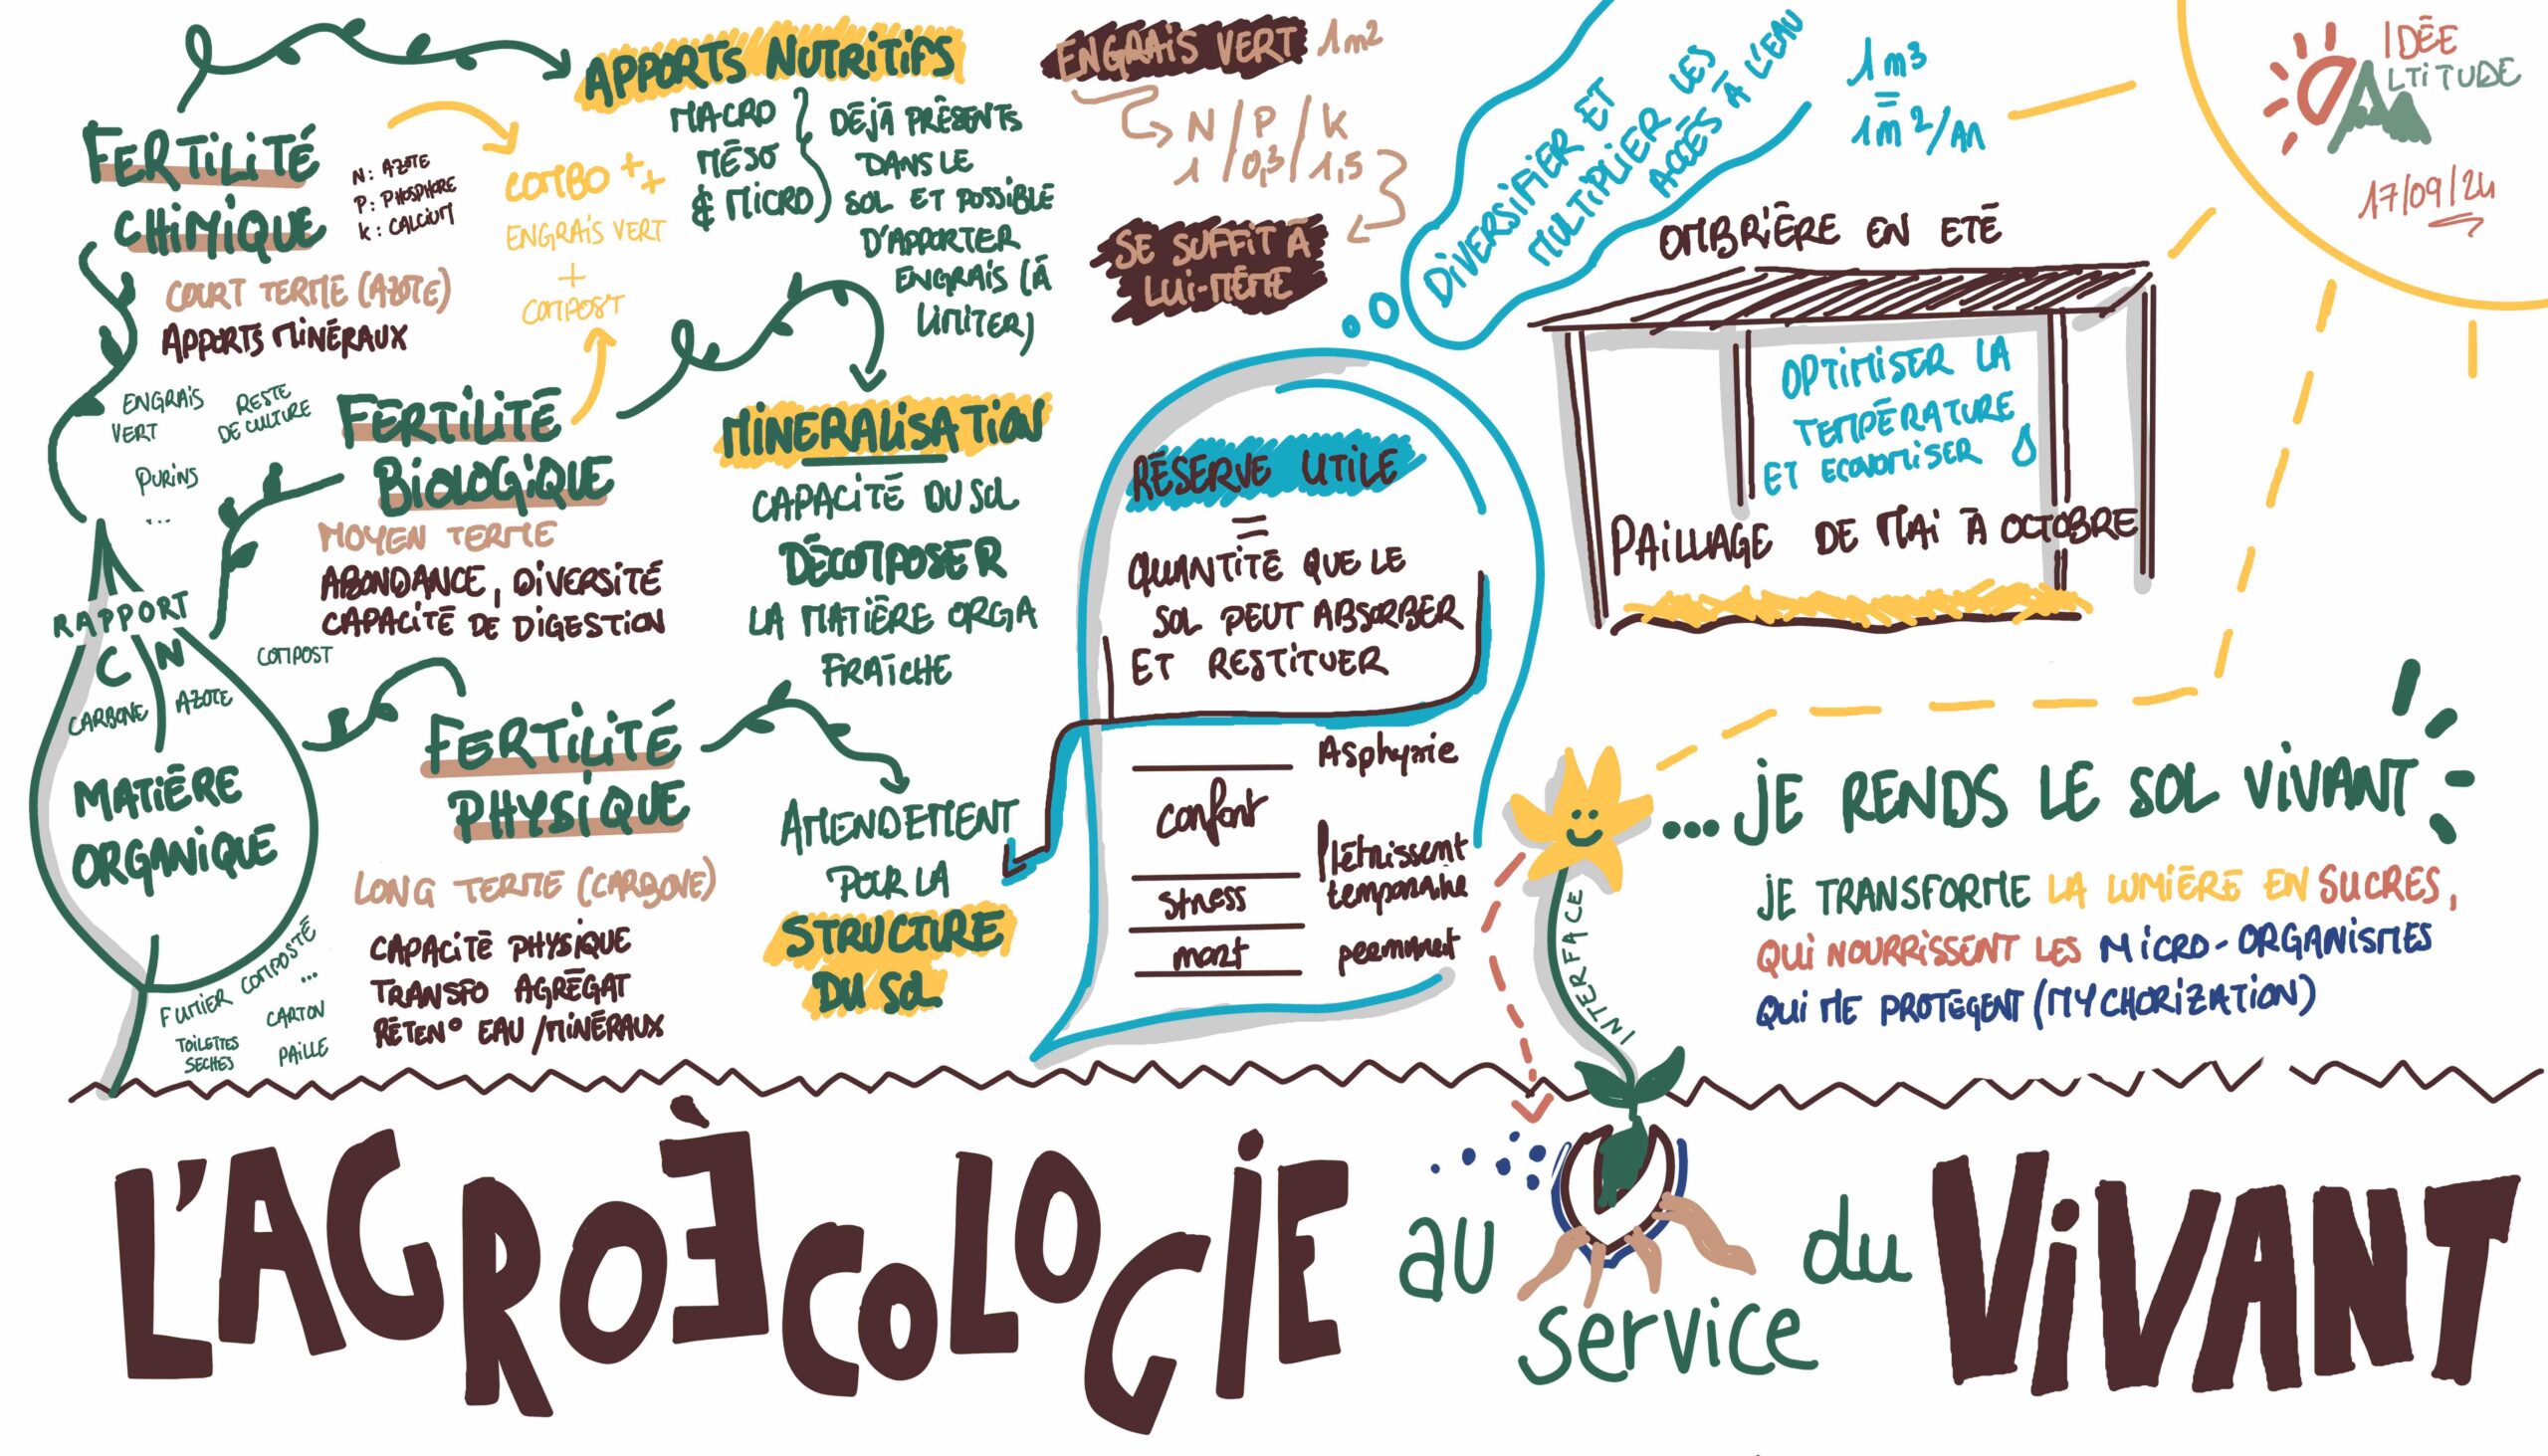 FERTILITÉ
CHIMIQUE
COURT TERME (AZOTE)
APPORTS MINÉRAUX
N : AZOTE
P : PHOSPHORE
K : CALCIUM
COMBO ++
ENGRAIS VERT
+
COMPOST
APPORTS NUTRITIFS
MACRO
MÉSO
& MICRO
DÉJÀ PRÉSENTS
DANS LE
SOL ET POSSIBLE
D'APPORTER
ENGRAIS (À
LIMITER)
ENGRAIS VERT 1m2
N / P / K
1 / 0,3 / 1,5
SE SUFFIT À
LUI-MÊME
DIVERSIFIER ET
MULTIPLIER LES
ACCÈS À L'EAU
1 m3
=
1m2/AN
IDÉE
ALTITUDE
17/09/24
OMBRIÈRE EN ETÉ
OPTIMISER LA
TEMPÉRATURE
ET ECONOMISER
PAILLAGE DE MAI À OCTOBRE
ENGRAIS
VERT
RESTE
DE CULTURE
PURINS
...
FERTILITÉ
BIOLOGIQUE
MOYEN TERME
ABONDANCE, DIVERSITÉ
CAPACITÉ DE DIGESTION
MINERALISATION
CAPACITÉ DU SOL
DÉCOMPOSER
LA MATIÈRE ORGA
FRAÎCHE
RÉSERVE UTILE
=
QUANTITÉ QUE LE
SOL PEUT ABSORBER
ET RESTITUER
Asphyxie
confort
Flétrissent
temporaire
stress
mort
permanet
RAPPORT
C \ N
CARBONE
AZOTE
COMPOST
MATIÈRE
ORGANIQUE
FUMIER COMPOSTÉ
...
CARTON
TOILETTES
SECHES
PAILLE
FERTILITÉ
PHYSIQUE
LONG TERME (CARBONE)
CAPACITÉ PHYSIQUE
TRANSFO AGRÉGAT
RÉTEN° EAU / MINÉRAUX
AMENDEMENT
POUR LA
STRUCTURE
DU SOL
INTERFACE
...JE RENDS LE SOL VIVANT
JE TRANSFORME LA LUMIÈRE EN SUCRES,
QUI NOURRISSENT LES MICRO-ORGANISMES
QUI ME PROTÈGENT (MYCHORIZATION)
L'AGROÈCOLOGIE au service du VIVANT